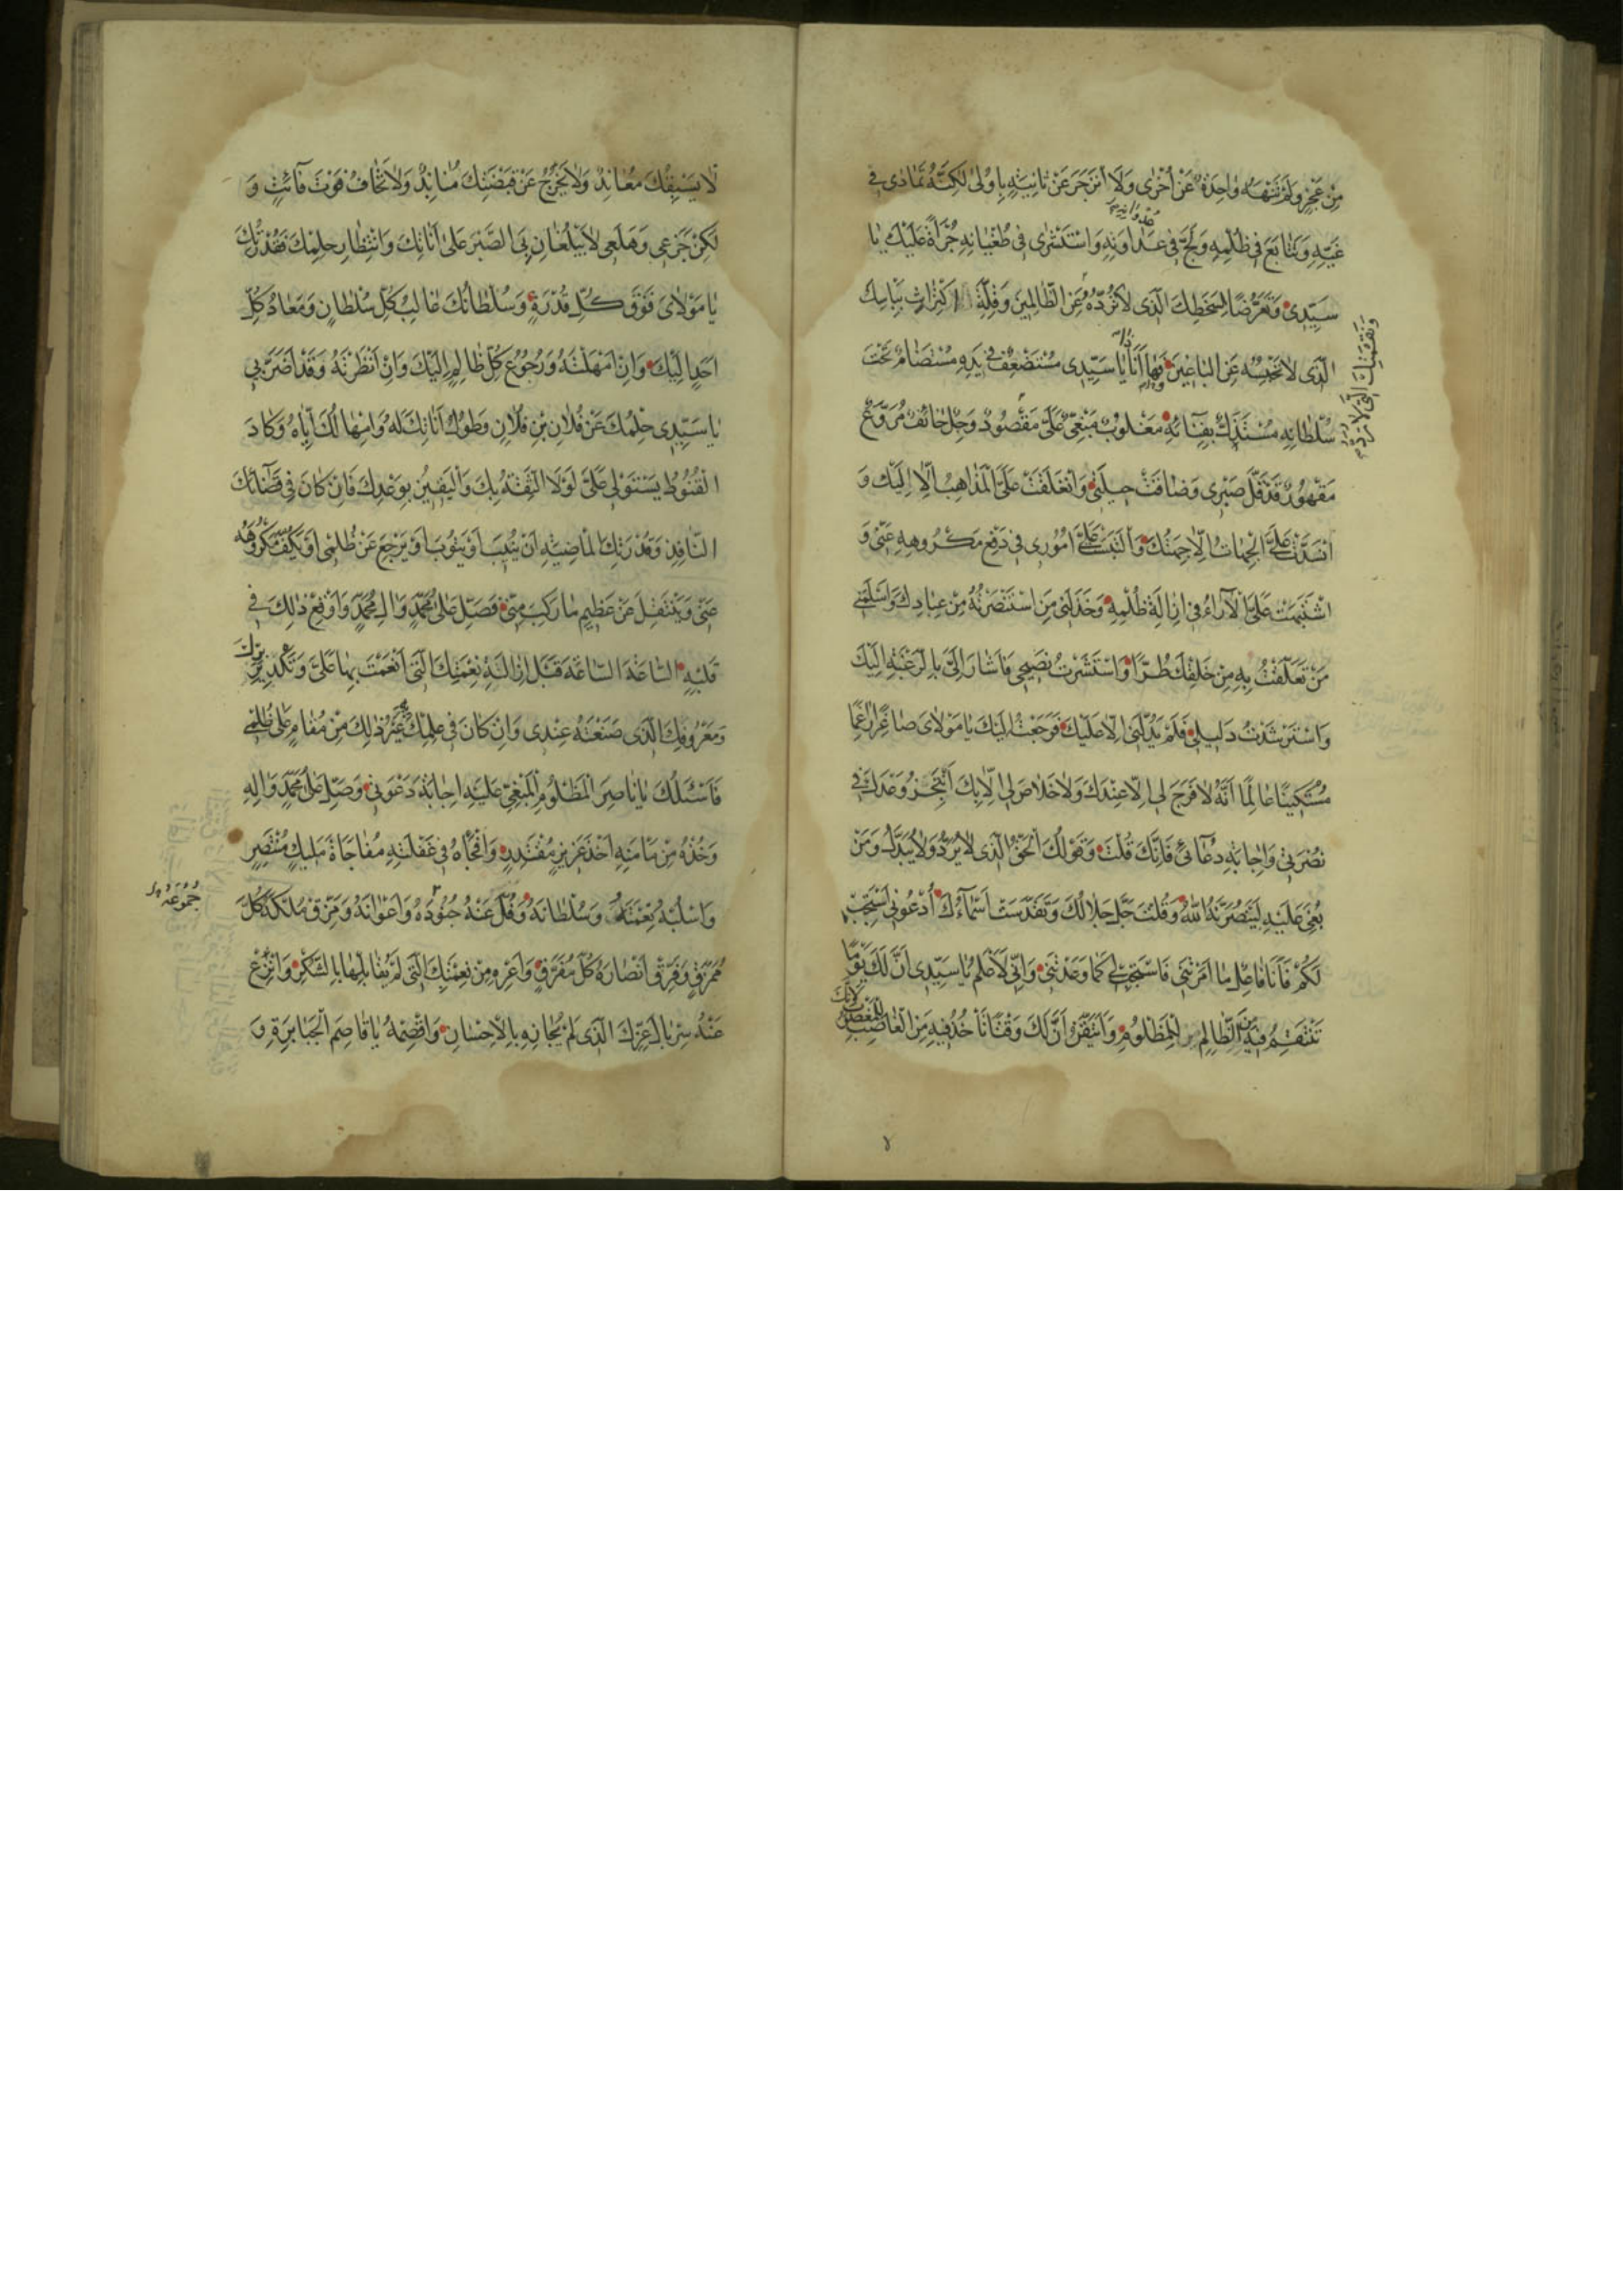 مِنْ عَجْزٍ وَلَمْ تَنْهَهُ وَاحِدَةٌ عَنْ أُخْرَى وَلَا انْزَجَرَ عَنْ ثَانِيَةٍ بِأُولَى لَكِنَّهُ تَمَادَى فِي
غَيِّهِ وَتَتَابَعَ فِي ظُلْمِهِ وَلَجَّ فِي عَدَاوَتِهِ وَاسْتَشْرَى فِي طُغْيَانِهِ جُرْأَةً عَلَيْكَ يَا
سَيِّدِي وَتَعَرُّضًا لِسَخَطِكَ الَّذِي لَا تَرُدُّهُ عَنِ الظَّالِمِينَ وَقِلَّةَ اكْتِرَاثٍ بِبَأْسِكَ
الَّذِي لَا تَحْبِسُهُ عَنِ الْبَاغِينَ فَهَا أَنَا يَا سَيِّدِي مُسْتَضْعَفٌ فِي يَدِهِ مُسْتَضَامٌ تَحْتَ
سُلْطَانِهِ مُسْتَذَلٌّ بِفِنَائِهِ مَغْلُوبٌ مَبْغِيٌّ عَلَيَّ مَقْصُودٌ وَجِلٌ خَائِفٌ مُرَوَّعٌ
مَقْهُورٌ قَدْ قَلَّ صَبْرِي وَضَاقَتْ حِيلَتِي وَانْغَلَقَتْ عَلَيَّ الْمَذَاهِبُ إِلَّا إِلَيْكَ وَ
انْسَدَّتْ عَلَيَّ الْجِهَاتُ إِلَّا جِهَتُكَ وَالْتَبَسَتْ عَلَيَّ أُمُورِي فِي دَفْعِ مَكْرُوهِهِ عَنِّي وَ
اشْتَبَهَتْ عَلَيَّ الْآرَاءُ فِي إِزَالَةِ ظُلْمِهِ وَخَذَلَنِي مَنِ اسْتَنْصَرْتُهُ مِنْ عِبَادِكَ وَأَسْلَمَنِي
مَنْ تَعَلَّقْتُ بِهِ مِنْ خَلْقِكَ طُرًّا وَاسْتَشَرْتُ نَصِيحِي فَأَشَارَ إِلَيَّ بِالرَّغْبَةِ إِلَيْكَ
وَاسْتَرْشَدْتُ دَلِيلِي فَلَمْ يَدُلَّنِي إِلَّا عَلَيْكَ فَرَجَعْتُ إِلَيْكَ يَا مَوْلَايَ صَاغِرًا رَاغِمًا
مُسْتَكِينًا عَالِمًا أَنَّهُ لَا فَرَجَ لِي إِلَّا عِنْدَكَ وَلَا خَلَاصَ لِي إِلَّا بِكَ أَنْتَجِزُ وَعْدَكَ فِي
نُصْرَتِي وَإِجَابَةِ دُعَائِي فَإِنَّكَ قُلْتَ وَقَوْلُكَ الْحَقُّ الَّذِي لَا يُرَدُّ وَلَا يُبَدَّلُ وَمَنْ
بُغِيَ عَلَيْهِ لَيَنْصُرَنَّهُ اللهُ وَقُلْتَ جَلَّ جَلَالُكَ وَتَقَدَّسَتْ أَسْمَاؤُكَ أُدْعُونِي أَسْتَجِبْ
لَكُمْ فَأَنَا فَاعِلٌ مَا أَمَرْتَنِي فَاسْتَجِبْ لِي كَمَا وَعَدْتَنِي وَإِنِّي لَأَعْلَمُ يَا سَيِّدِي أَنَّ لَكَ يَوْمًا
تَنْتَقِمُ فِيهِ مِنَ الظَّالِمِ لِلْمَظْلُومِ وَأَتَيَقَّنُ أَنَّ لَكَ وَقْتًا تَأْخُذُ فِيهِ مِنَ الْغَاصِبِ لِلْمَغْصُوبِ
لِأَنَّكَ
وَنَقِمَتِكَ الَّتِي لَا
لَا يَسْبِقُكَ مُعَانِدٌ وَلَا يَخْرُجُ عَنْ قَبْضَتِكَ مُنَابِذٌ وَلَا تَخَافُ فَوْتَ فَائِتٍ وَ
لَكِنْ جَزَعِي وَهَلَعِي لَا يَبْلُغَانِ بِيَ الصَّبْرَ عَلَى أَنَاتِكَ وَانْتِظَارِ حِلْمِكَ فَقُدْرَتُكَ
يَا مَوْلَايَ فَوْقَ كُلِّ قُدْرَةٍ وَسُلْطَانُكَ غَالِبُ كُلِّ سُلْطَانٍ وَمَعَادُ كُلِّ
أَحَدٍ إِلَيْكَ وَإِنْ أَمْهَلْتَهُ وَرُجُوعُ كُلِّ ظَالِمٍ إِلَيْكَ وَإِنْ أَنْظَرْتَهُ وَقَدْ أَضَرَّنِي
يَا سَيِّدِي حِلْمُكَ عَنْ فُلَانِ بْنِ فُلَانٍ وَطُولُ أَنَاتِكَ لَهُ وَإِمْهَالُكَ إِيَّاهُ وَكَادَ
الْقُنُوطُ يَسْتَوْلِي عَلَيَّ لَوْلَا الثِّقَةُ بِكَ وَالْيَقِينُ بِوَعْدِكَ فَإِنْ كَانَ فِي قَضَائِكَ
النَّافِذِ وَقُدْرَتِكَ الْمَاضِيَةِ أَنْ يُنِيبَ أَوْ يَتُوبَ أَوْ يَرْجِعَ عَنْ ظُلْمِي أَوْ يَكُفَّ مَكْرُوهَهُ
عَنِّي وَيَنْتَقِلَ عَنْ عَظِيمِ مَا رَكِبَ مِنِّي فَصَلِّ عَلَى مُحَمَّدٍ وَآلِ مُحَمَّدٍ وَأَوْقِعْ ذَلِكَ فِي
قَلْبِهِ السَّاعَةَ السَّاعَةَ قَبْلَ إِزَالَةِ نِعْمَتِكَ الَّتِي أَنْعَمْتَ بِهَا عَلَيَّ وَتَكْدِيرِ بِرِّكَ
وَمَعْرُوفِكَ الَّذِي صَنَعْتَهُ عِنْدِي وَإِنْ كَانَ فِي عِلْمِكَ غَيْرُ ذَلِكَ مِنْ مُقَامٍ عَلَى ظُلْمِي
فَأَسْئَلُكَ يَا نَاصِرَ الْمَظْلُومِ الْمَبْغِيِّ عَلَيْهِ إِجَابَةَ دَعْوَتِي وَصَلِّ عَلَى مُحَمَّدٍ وَآلِهِ
وَخُذْهُ مِنْ مَأْمَنِهِ أَخْذَ عَزِيزٍ مُقْتَدِرٍ وَافْجَأْهُ فِي غَفْلَتِهِ مُفَاجَاةَ مَلِيكٍ مُنْتَصِرٍ
وَاسْلُبْهُ نِعْمَتَهُ وَسُلْطَانَهُ وَفُلَّ عَنْهُ جُنُودَهُ وَأَعْوَانَهُ وَمَزِّقْ مُلْكَهُ كُلَّ
جُمُوعَهُ
مُمَزَّقٍ وَفَرِّقْ أَنْصَارَهُ كُلَّ مُفَرَّقٍ وَأَعْرِهِ مِنْ نِعْمَتِكَ الَّتِي لَمْ يُقَابِلْهَا بِالشُّكْرِ وَانْزِعْ
عَنْهُ سِرْبَالَ عِزِّكَ الَّذِي لَمْ يُجَازِهِ بِالْإِحْسَانِ وَاقْصِمْهُ يَا قَاصِمَ الْجَبَابِرَةِ وَ